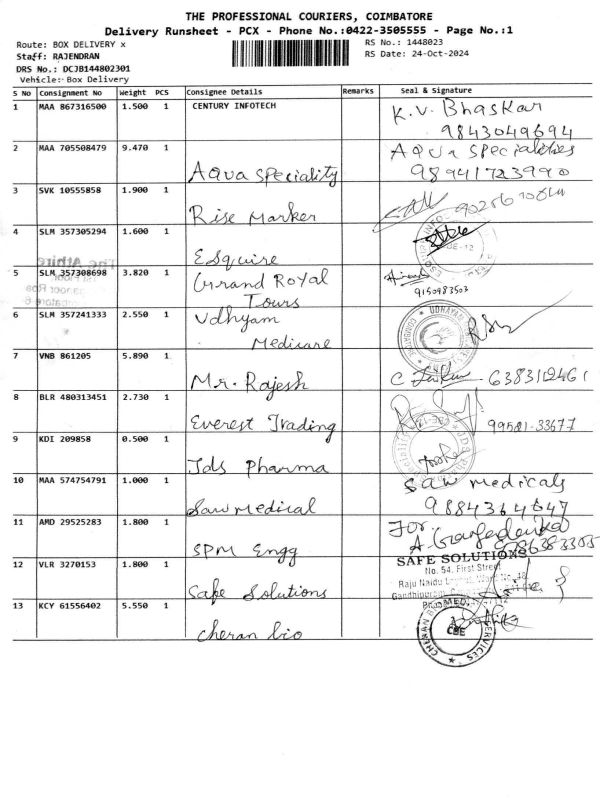 THE PROFESSIONAL COURIERS, COIMBATORE
Delivery Runsheet - PCX - Phone No.:0422-3505555 - Page No.:1
Route: BOX DELIVERY x
RS No.: 1448023
Staff: RAJENDRAN
RS Date: 24-Oct-2024
DRS No.: DCJB144802301
Vehicle:- Box Delivery
S No Consignment No Weight PCS Consignee Details Remarks Seal & Signature
1 MAA 867316500 1.500 1 CENTURY INFOTECH K.V. Bhaskar
9843049694
2 MAA 705508479 9.470 1 Aqua Speciality Aqua Specialities
98941723990
3 SVK 10555858 1.900 1 Rise Marker
4 SLM 357305294 1.600 1 Esquire
5 SLM 357308698 3.820 1 Grand Royal
Tours
9150983503
6 SLM 357241333 2.550 1 Udhyam
Medicare
7 VNB 861205 5.890 1 Mr. Rajesh
8 BLR 480313451 2.730 1 Everest Trading 99581-33677
9 KDI 209858 0.500 1 Jds Pharma
10 MAA 574754791 1.000 1 Saw Medical Saw Medicals
9884364647
11 AMD 29525283 1.800 1 SPM Engg For
12 VLR 3270153 1.800 1 Safe Solutions SAFE SOLUTIONS
No. 54, First Street
Raju Naidu
Gandhipuram
13 KCY 61556402 5.550 1 Cheran bio
CBE